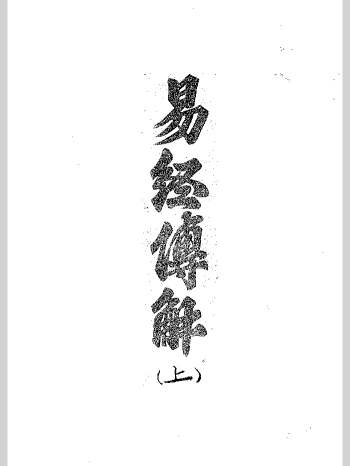 易经傳解
(上)